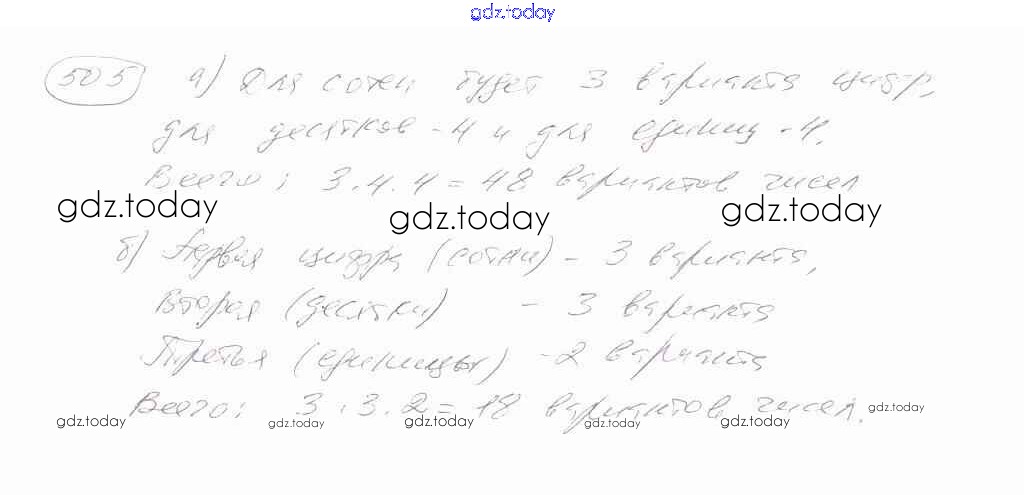 gdz.today
505 а) Для сотен будет 3 варианта цифр,
для десятков - 4 и для единиц - 4.
Всего: 3 · 4 · 4 = 48 вариантов чисел
gdz.today gdz.today gdz.today
б) Первая цифра (сотни) - 3 варианта,
Вторая (десятки) - 3 варианта
Третья (единицы) - 2 варианта
Всего: 3 · 3 · 2 = 18 вариантов чисел.
gdz.today gdz.today gdz.today gdz.today gdz.today gdz.today